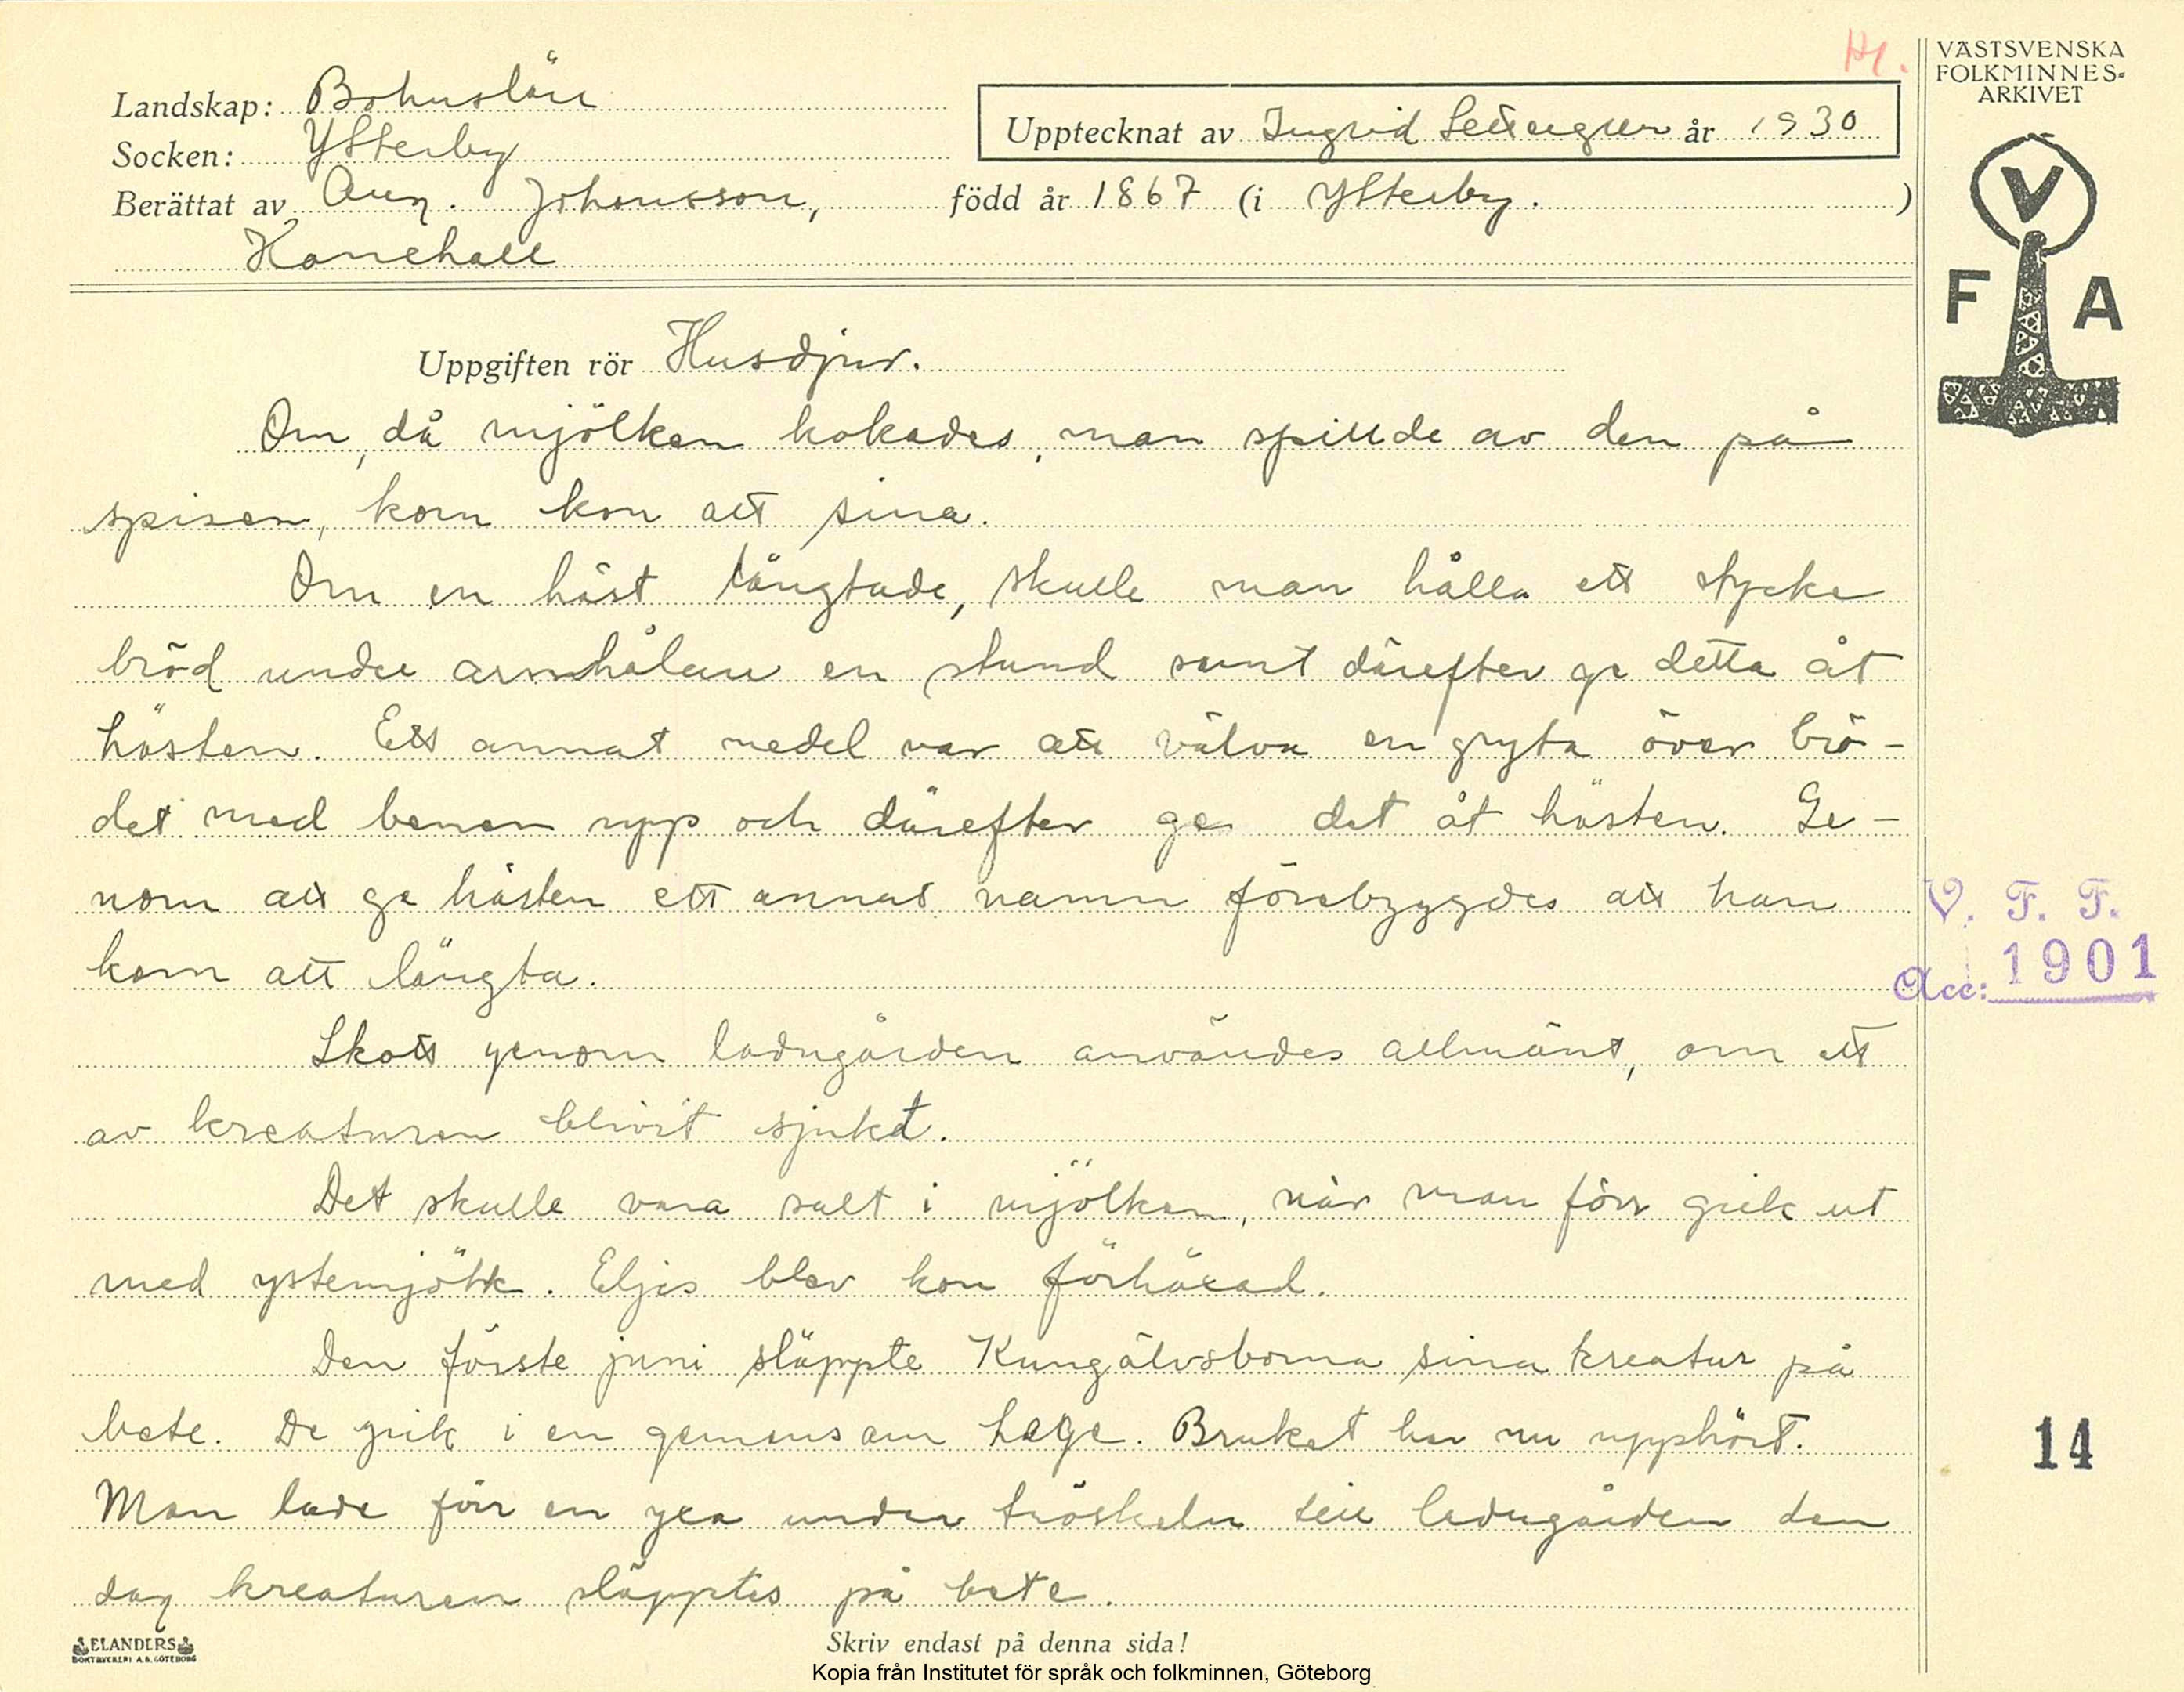 H.
VÄSTSVENSKA
FOLKMINNES-
ARKIVET
Landskap: Bohuslän
Socken: Ytterby
Upptecknat av Ingrid år 1930
Berättat av Aug. Johansson, född år 1867 (i Ytterby. )
Kanehall
V
F A
Uppgiften rör Husdjur.
Om, då mjölken kokades, man spillde av den på
spisen, kom kon att sina.
Om en häst längtade, skulle man hålla ett stycke
bröd under armhålan en stund samt därefter ge detta åt
hästen. Ett annat medel var att välva en gryta över brö-
det med benen upp och därefter ge det åt hästen. Ge-
nom att ge hästen ett annat namn förebyggdes att han
kom att längta.
V. F. F.
Acc: 1901
Skott genom ladugården användes allmänt, om ett
av kreaturen blivit sjukt.
Det skulle vara salt i mjölken, när man förr gick ut
med ystemjölk. Eljes blev kon förhäxad.
Den förste juni släppte Kungälvsborna sina kreatur på
bete. De gick i en gemensam hage. Bruket har nu upphört.
14
Man lade förr en yxa under tröskeln till ladugården den
dag kreaturen släpptes på bete.
ELANDERS
BOKTRYCKERI A.B. GÖTEBORG
Skriv endast på denna sida!
Kopia från Institutet för språk och folkminnen, Göteborg